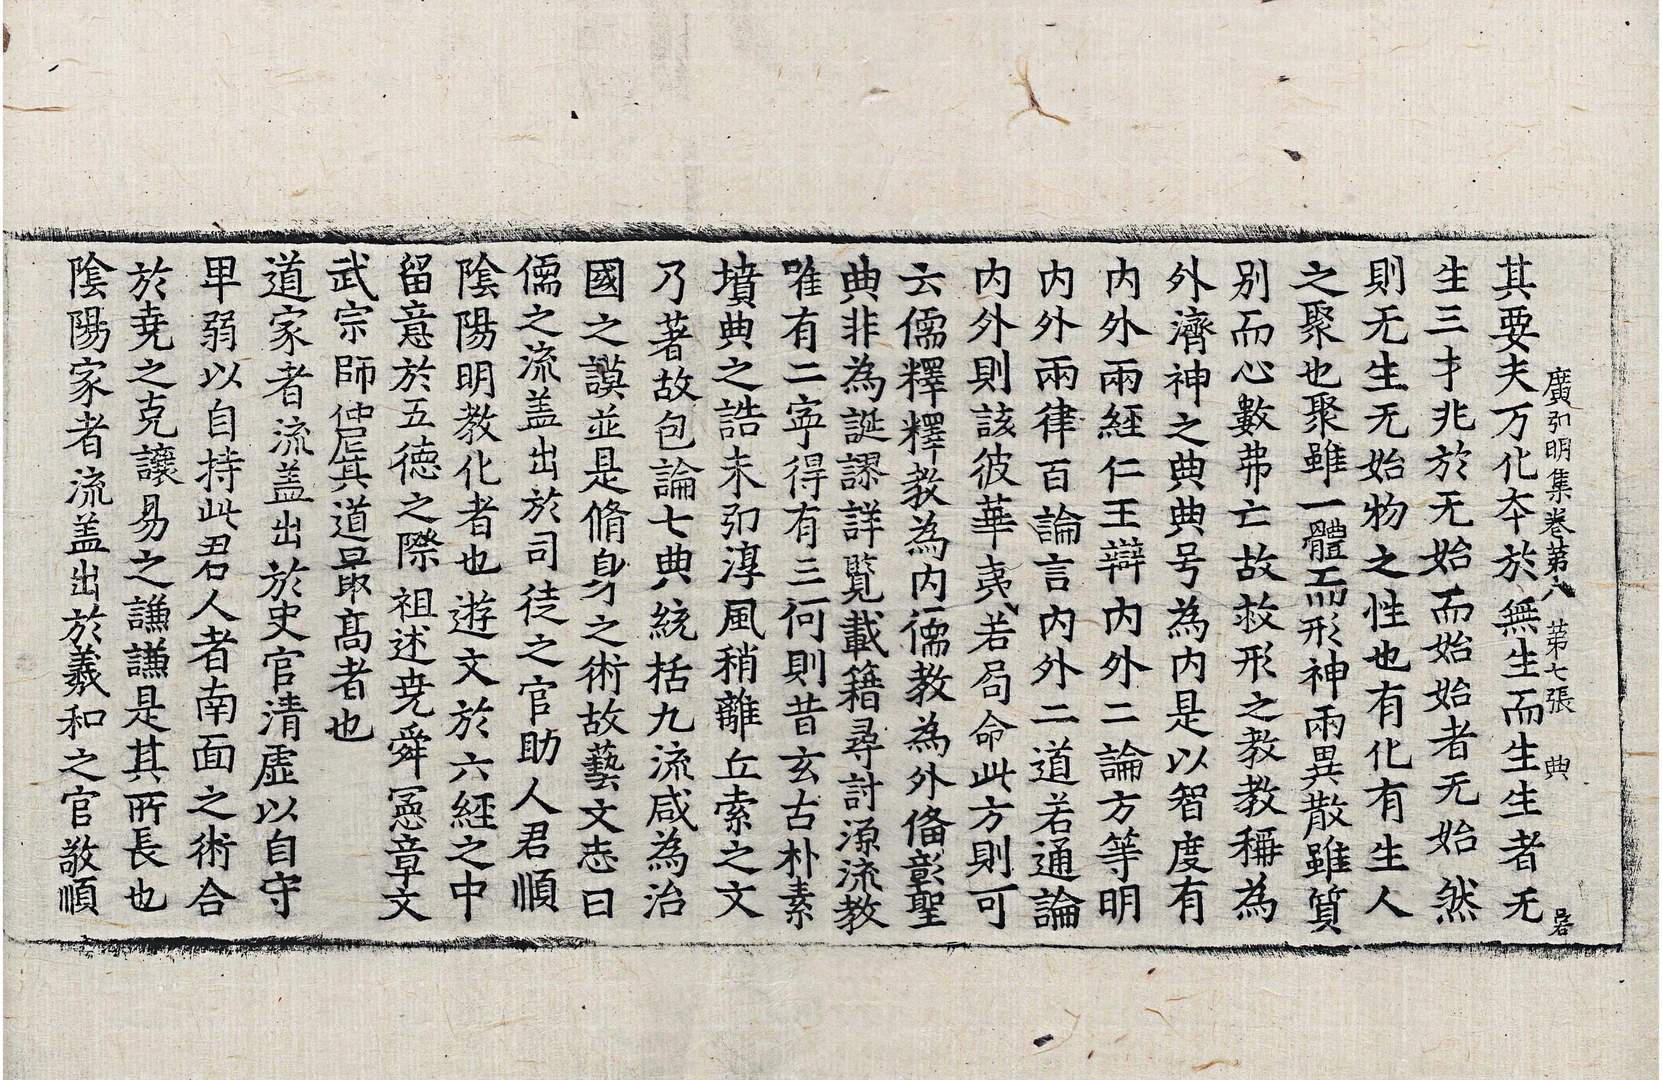 廣弘明集卷第八　第七張　典
其要夫万化夲於無生而生生者无
生三才兆於无始而始始者无始然
則无生无始物之性也有化有生人
之聚也聚雖一體而形神兩異散雖質
别而心數弗亡故救形之教教稱為
外濟神之典典号為内是以智度有
内外兩經仁王辯内外二論方等明
内外兩律百論言内外二道若通論
内外則該彼華夷若局命此方則可
云儒釋釋教為内儒教為外俻彰聖
典非為誕謬詳覧載籍尋討源流教
唯有二寜得有三何則昔玄古朴素
墳典之誥未弘淳風稍離丘索之文
乃著故包論七典統括九流咸為治
國之謨並是脩身之術故藝文志曰
儒之流盖出於司徒之官助人君順
陰陽明教化者也遊文於六經之中
留意於五德之際祖述尭舜憲章文
武宗師仲尼其道最髙者也
道家者流盖出於史官清虛以自守
卑弱以自持此君人者南面之術合
於尭之克讓易之謙謙是其所長也
陰陽家者流盖出於羲和之官敬順